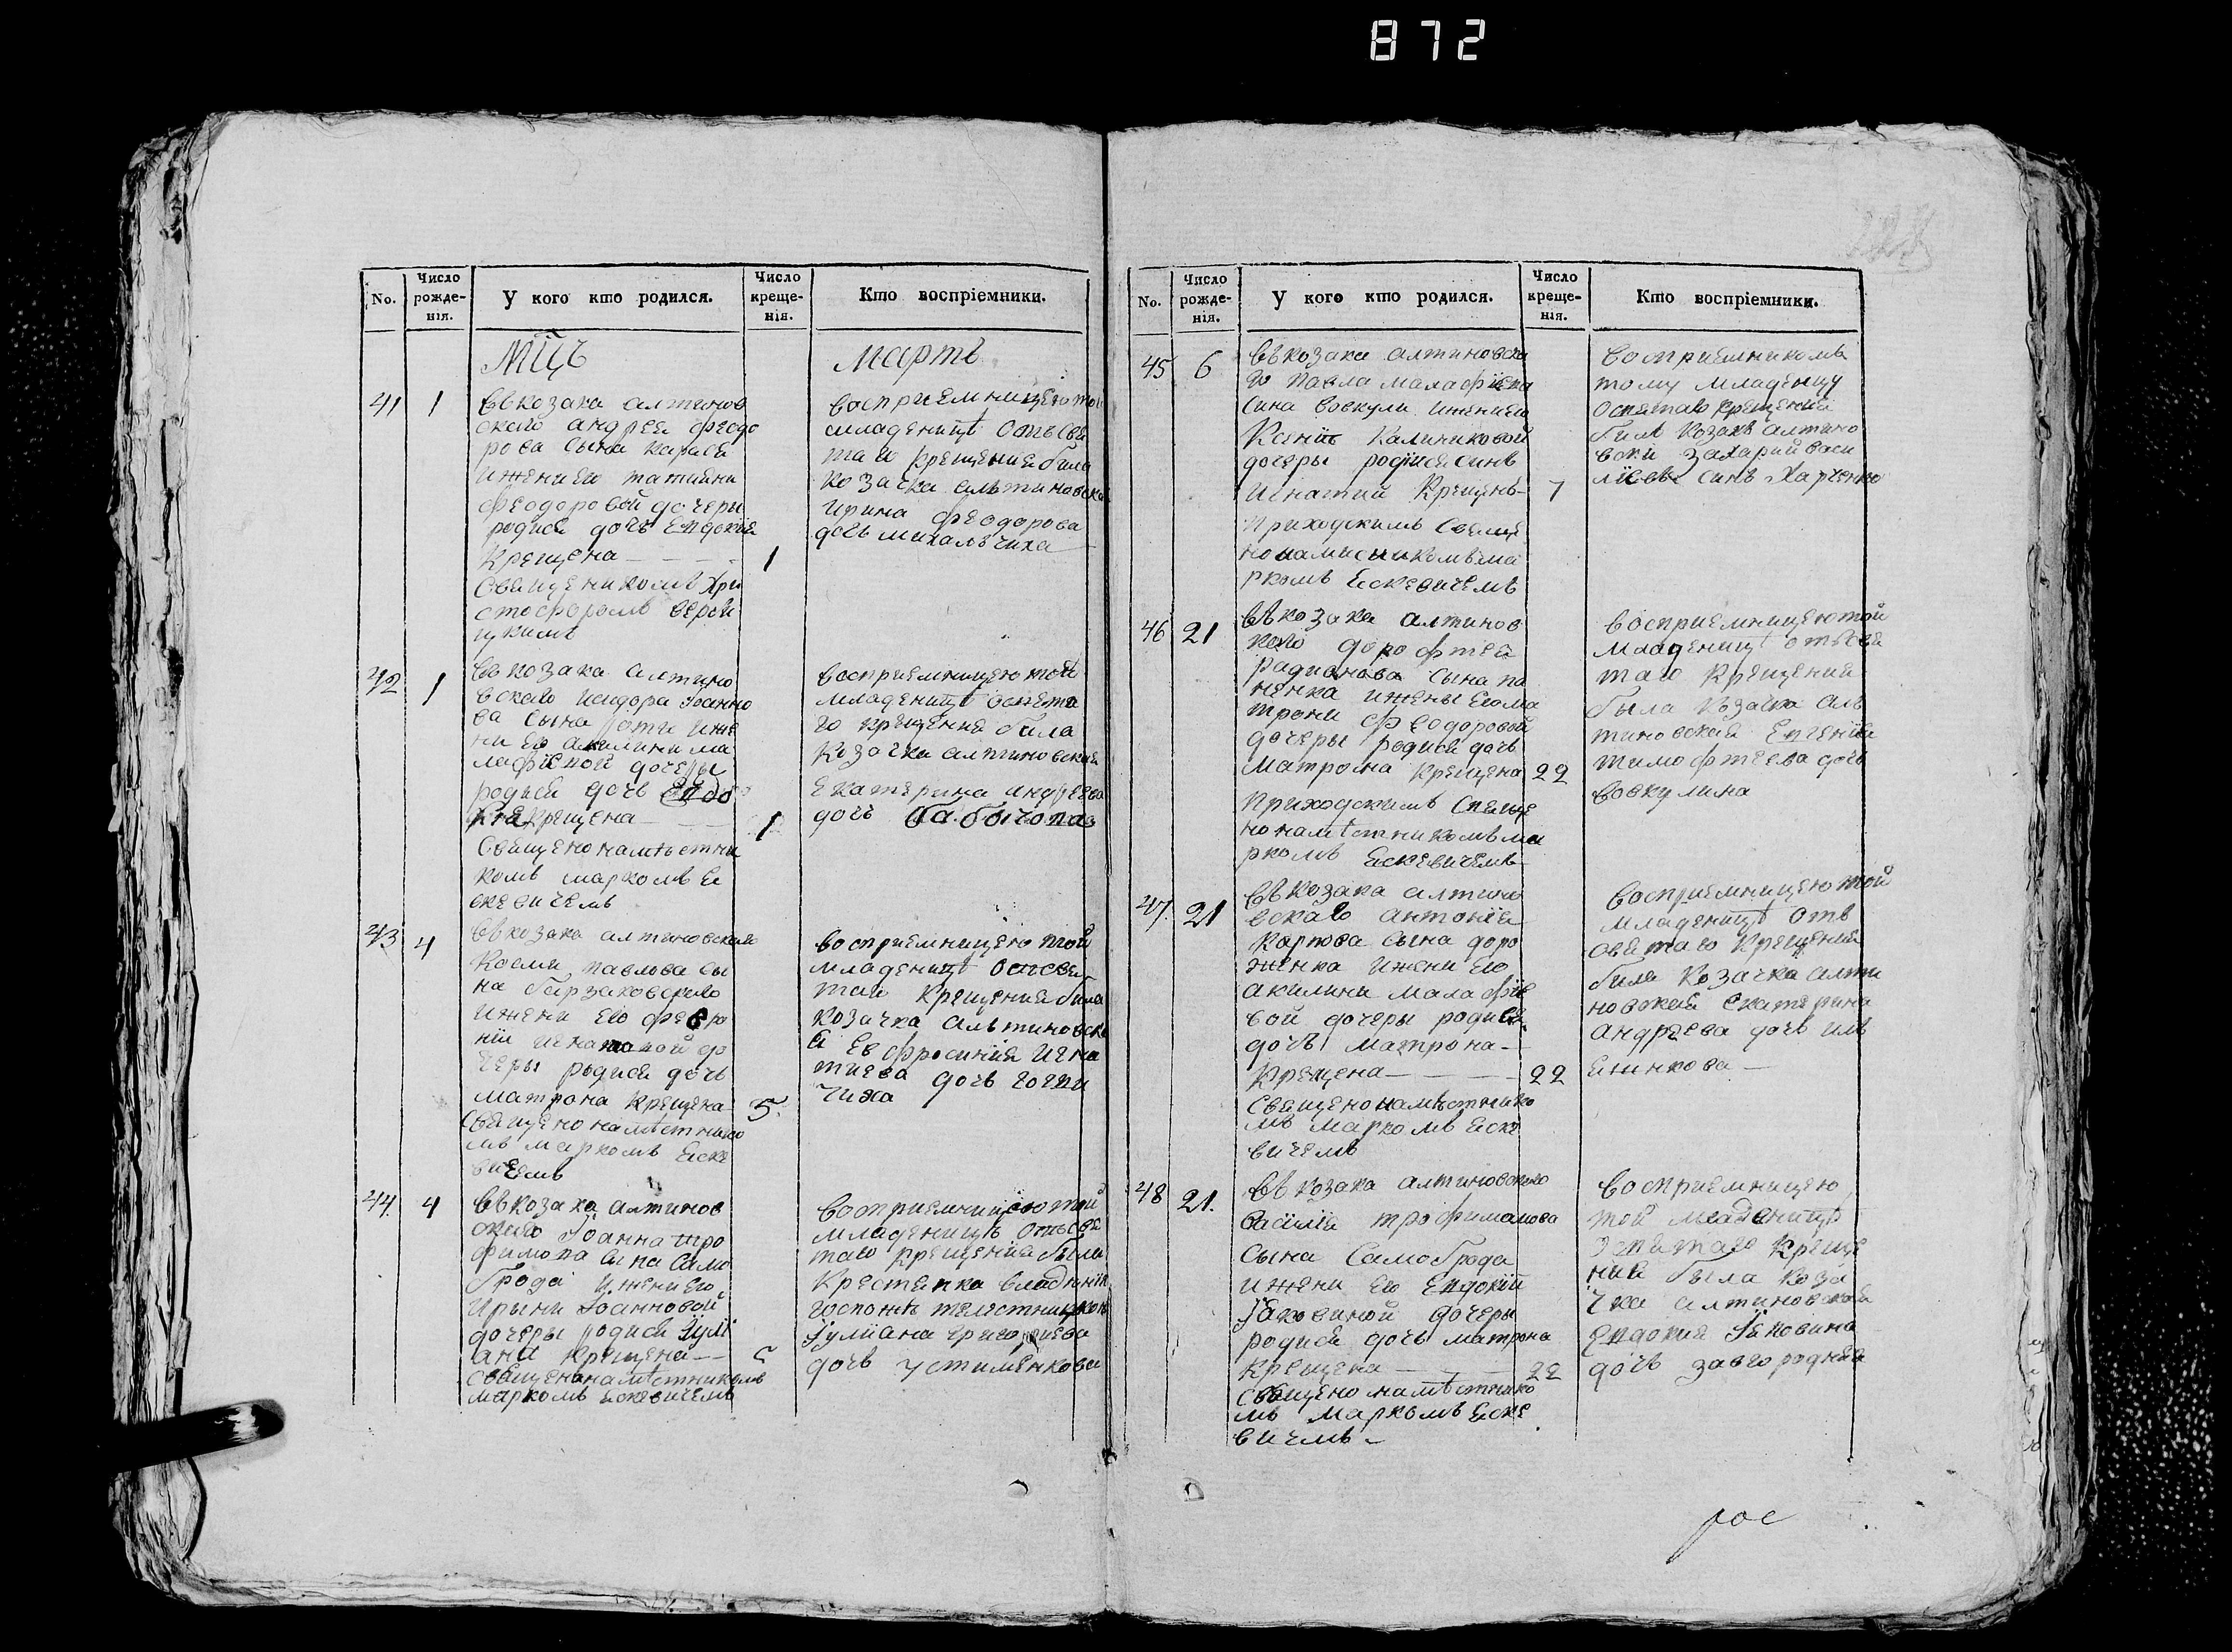 872
No.
Число рожде-нія.
У кого кто родился.
Число креще-нія.
Кто воспріемники.
Мцъ
Мартъ
41 1
въ козака алтинов
ского андрея феодо
рова сына
ижени его татияни
феодоровой дочери
родися дочь Евдокия
Крещена 1
Священикомъ Хри
стофоромъ верой
цкимъ
восприемницею той
младеници отъ Свя
таго крещения была
козачка алтиновска
ирина феодорова
дочь михальчиха
42 1
въ козака алтино
вскаго исидора Іоанно
ва сына ижe
ни его акилини ма
лафіевой дочеры
родися дочь Евдо
кия крещена 1
Священонамѣстни
комъ маркомъ Ея
скевичемъ
восприемницею той
младеницѣ
го крещения была
Козачка алтиновская
Екатерина андреева
дочь бабычова
43 4
въ козака алтиновскаго
Косми павлова сы
на
ижени его февро
нии игнатовой до
черы родися дочь
матрона крещена 5.
Священонамѣстнико
мъ маркомъ Еяске
вичемъ
восприемницею той
младеницѣ
таго крещения была
козачка альтиновска
я Евфросиния игна
тиева дочь
чиха
44. 4
въ козака алтинов
скаго Іоанна тро
фимова сына Само
брода ижени его
ирыни Іоанновой
дочеры родися Іулі
ана крещена 5
священонамѣстникомъ
маркомъ Ескевичемъ
восприемницею той
младеницѣ отъ Свя
таго крещения была
госпожи
Іулиана григориева
дочь устименкова
No.
Число рожде-нія.
У кого кто родился.
Число креще-нія.
Кто воспріемники.
45 6
въ козака алтиновска
го павла малафиева
сина вовкули ижени его
Ксении Калиниковой
дочеры родися синъ
игнатий крещенъ 7
приходскимъ Свяще
нонамисникомъ ма
ркомъ Ескевичемъ
восприемникомъ
тому младенцу
крещения
билъ козакъ алтино
вски захарий васи
лиевъ синъ Харченко
46 21
въ козака алтинов
кого дорофтея
радионова сына па
ненка ижены его ма
троны феодоровой
дочеры родися дочь
матрона крещена 22
приходскимъ Свяще
нонамѣстникомъ ма
ркомъ Ескевичемъ
восприемницею той
младеницѣ отъ Свя
таго крещения
была козачка аль
тиновская Евгения
тимофтеева дочь
вовкулина
47. 21
въ козака алтино
вскаго антония
карпова сына доро
женка ижени его
акилини малафие
вой дочеры родися
дочь матрона
крещена 22
священонамѣстнико
мъ маркомъ Еяске
вичемъ
восприемницею той
младеницѣ отъ
святаго крещения
била козачка алти
новская Екатерина
андреева дочь иль
яшинкова
48 21.
въ козака алтиновскаго
василия трофимова
сына Самоброда
ижени его Евдокии
Іаковиной дочеры
родися дочь матрона
крещена 22
священонамѣстнико
мъ маркомъ Еяске
вичмъ
восприемницею
той младеницѣ
креще
ния была коза
чка алтиновская
Евдокия Іаковина
дочь завгородняя
рос